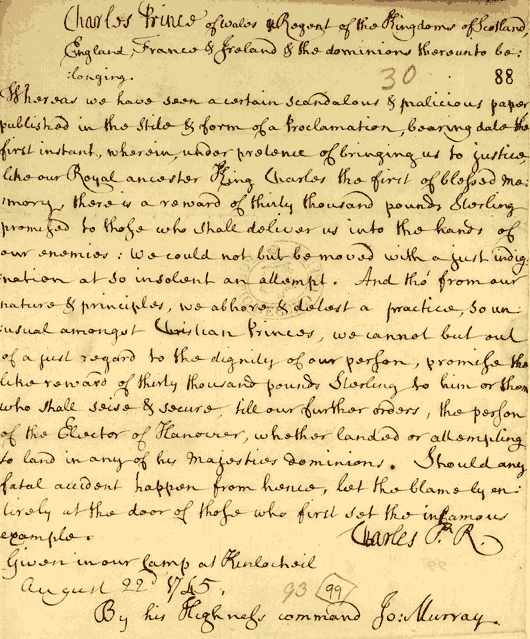 Charles Prince of wales & Regent of the Kingdoms of Scotland,
England, France & Ireland & the dominions thereunto be:
:longing.
30
88
Whereas we have seen a certain scandalous & malicious paper
published in the Stile & form of a Proclamation, bearing date the
first instant, wherein, under pretence of bringing us to justice,
like our Royal ancester King Charles the first of blessed me:
:mory, there is a reward of thirty thousand pounds Sterling
promised to those who shall deliver us into the hands of
our enemies: we could not but be moved with a just indig:
:nation at so insolent an attempt. And tho' from our
nature & principles, we abhore & detest a practice, so un:
:usual amongst Christian Princes, we cannot but out
of a just regard to the dignity of our person, promise the
like reward of thirty thousand pounds Sterling to him or those
who shall seise & secure, till our further orders, the person
of the Elector of Hanover, whether landed or attempting
to land in any of his majesties dominions. Should any
fatal accident happen from hence, let the blame ly en:
:tirely at the door of those who first set the infamous
example.
Charles P. R.
Given in our Camp at Kinlocheil
August 22d 1745.
93
99
By his Highness command Jo: Murray.